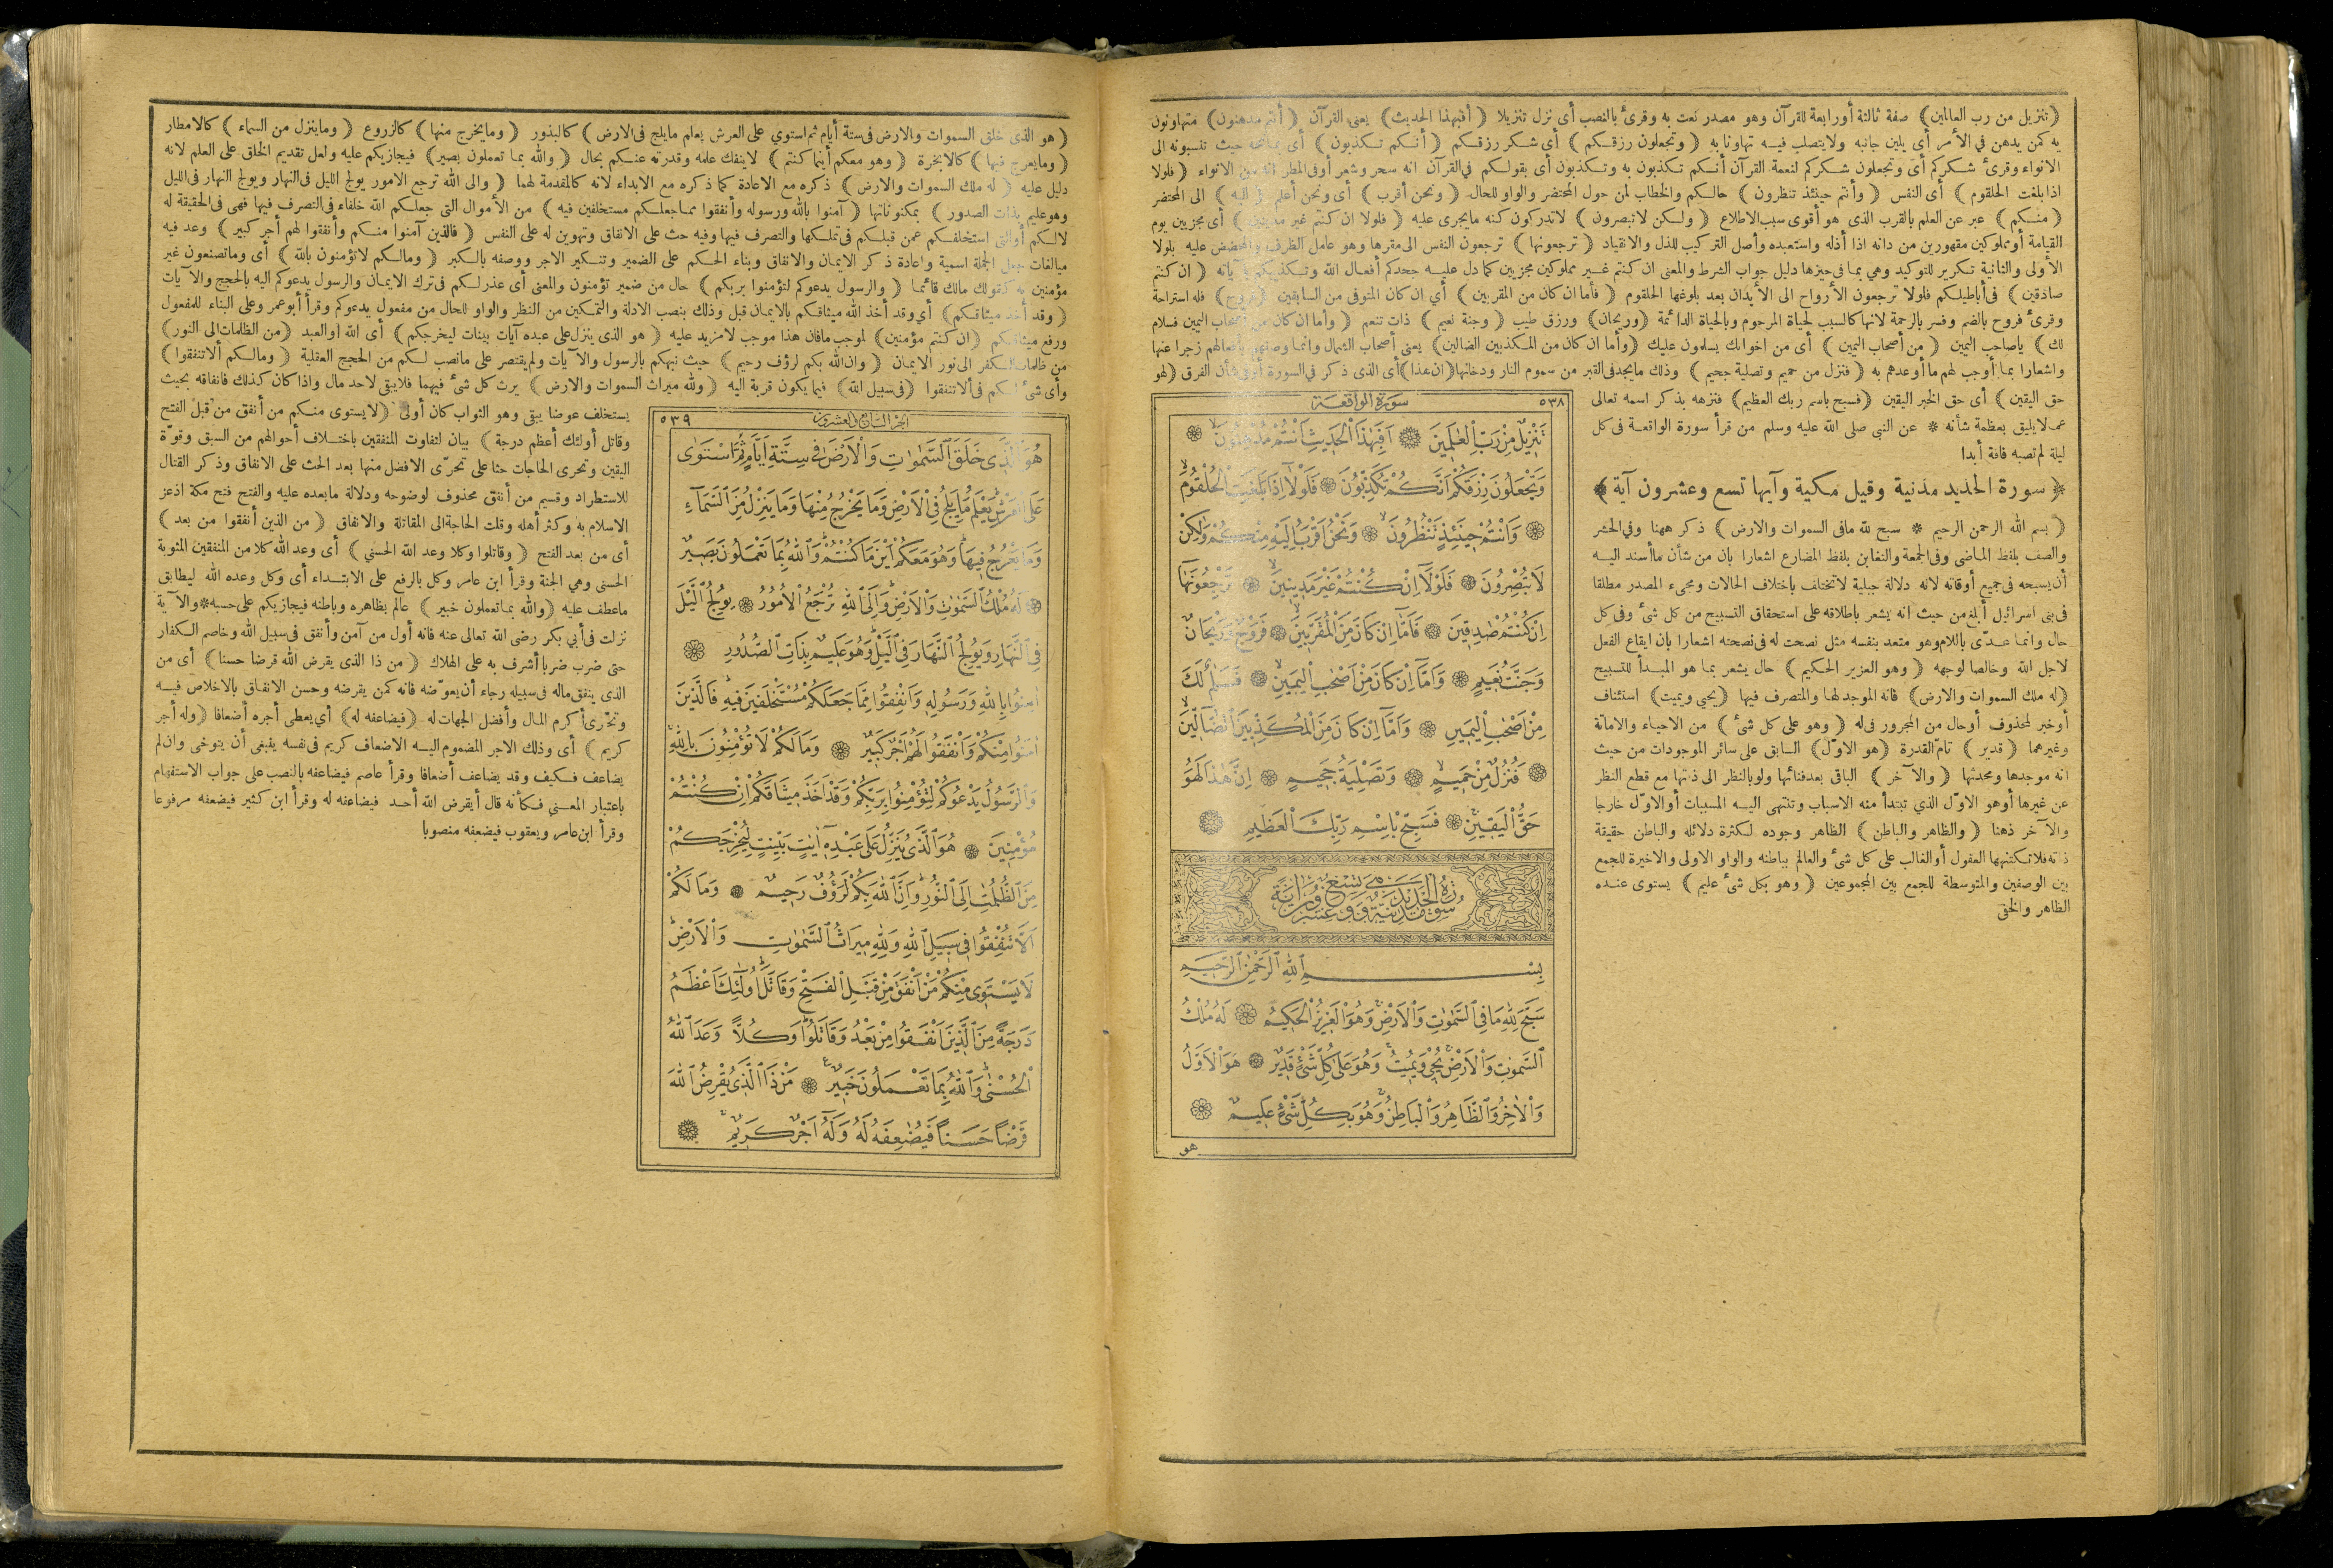 ﴿ تنزيل من رب العالمين ﴾ صفة ثالثة أورابعة للقرآن وهو مصدر نعت به وقرئ بالنصب أى نزل تنزيلا ﴿ أفبهذا الحديث ﴾ يعنى القرآن ﴿ أنتم مدهنون ﴾ متهاونون
به كمن يدهن في الأمر أى يلين جانبه ولايتصلب فيه تهاونا به ﴿ وتجعلون رزقكم ﴾ أى شكر رزقكم ﴿ أنكم تكذبون ﴾ أى بمانحه حيث تنسبونه الى
الانواء وقرئ شكركم أى وتجعلون شكركم لنعمة القرآن أنكم تكذبون به وتكذبون أى بقولكم في القرآن انه سحر وشعر أوفى المطر انه من الانواء ﴿ فلولا
اذا بلغت الحلقوم ﴾ أى النفس ﴿ وأنتم حينئذ تنظرون ﴾ حالكم والخطاب لمن حول المحتضر والواو للحال ﴿ ونحن أقرب ﴾ أى ونحن أعلم ﴿ اليه ﴾ الى المحتضر
﴿ منكم ﴾ عبر عن العلم بالقرب الذى هو أقوى سبب الاطلاع ﴿ ولكن لاتبصرون ﴾ لاتدركون كنه مايجرى عليه ﴿ فلولا ان كنتم غير مدينين ﴾ أى مجزيين يوم
القيامة أو مملوكين مقهورين من دانه اذا أذله واستعبده وأصل التركيب للذل والانقياد ﴿ ترجعونها ﴾ ترجعون النفس الى مقرها وهو عامل الظرف والمحضض عليه بلولا
الأولى والثانية تكرير للتوكيد وهي بما فى حيزها دليل جواب الشرط والمعنى ان كنتم غير مملوكين مجزيين كما دل عليه جحدكم أفعال الله وتكذيبكم بآياته ﴿ ان كنتم
صادقين ﴾ فى أباطيلكم فلولا ترجعون الأرواح الى الأبدان بعد بلوغها الحلقوم ﴿ فأما ان كان من المقربين ﴾ أي ان كان المتوفى من السابقين ﴿ فروح ﴾ فله استراحة
وقرئ فروح بالضم وفسر بالرحمة لانها كالسبب لحياة المرحوم وبالحياة الدائمة ﴿ وريحان ﴾ ورزق طيب ﴿ وجنة نعيم ﴾ ذات تنعم ﴿ وأما ان كان من أصحاب اليمين فسلام
لك ﴾ ياصاحب اليمين ﴿ من أصحاب اليمين ﴾ أى من اخوانك يسلمون عليك ﴿ وأما ان كان من المكذبين الضالين ﴾ يعنى أصحاب الشمال وانما وصفهم بأفعالهم زجرا عنها
واشعارا بما أوجب لهم ما أوعدهم به ﴿ فنزل من حميم وتصلية جحيم ﴾ وذلك مايجد فى القبر من سموم النار ودخانها ﴿ ان هذا ﴾ أى الذى ذكر فى السورة أو فى شأن الفرق ﴿ لهو
حق اليقين ﴾ أى حق الخبر اليقين ﴿ فسبح باسم ربك العظيم ﴾ فنزهه بذكر اسمه تعالى
عما لايليق بعظمة شأنه * عن النبي صلى الله عليه وسلم من قرأ سورة الواقعة فى كل
ليلة لم تصبه فاقة أبدا
﴿ سورة الحديد مدنية وقيل مكية وآيها تسع وعشرون آية ﴾
﴿ بسم الله الرحمن الرحيم * سبح لله مافى السموات والارض ﴾ ذكر ههنا وفي الحشر
والصف بلفظ الماضى وفى الجمعة والتغابن بلفظ المضارع اشعارا بان من شأن ماأسند اليه
أن يسبحه فى جميع أوقاته لانه دلالة جبلية لاتختلف باختلاف الحالات ومجىء المصدر مطلقا
فى بنى اسرائيل أبلغ من حيث انه يشعر باطلاقه على استحقاق التسبيح من كل شئ وفى كل
حال وانما عدّى باللام وهو متعد بنفسه مثل نصحت له فى نصحته اشعارا بان ايقاع الفعل
لاجل الله وخالصا لوجهه ﴿ وهو العزيز الحكيم ﴾ حال يشعر بما هو المبدأ للتسبيح
﴿ له ملك السموات والارض ﴾ فانه الموجد لها والمتصرف فيها ﴿ يحيي ويميت ﴾ استئناف
أوخبر لمحذوف أوحال من المجرور فى له ﴿ وهو على كل شئ ﴾ من الاحياء والاماتة
وغيرهما ﴿ قدير ﴾ تام القدرة ﴿ هو الاول ﴾ السابق على سائر الموجودات من حيث
انه موجدها ومحدثها ﴿ والآخر ﴾ الباقى بعد فنائها ولو بالنظر الى ذاتها مع قطع النظر
عن غيرها أوهو الاول الذي تبتدأ منه الاسباب وتنتهى اليه المسببات أوالاول خارجا
والآخر ذهنا ﴿ والظاهر والباطن ﴾ الظاهر وجوده لكثرة دلائله والباطن حقيقة
ذاته فلاتكتنهها العقول أوالغالب على كل شئ والعالم بباطنه والواو الاولى والاخيرة للجمع
بين الوصفين والمتوسطة للجمع بين المجموعين ﴿ وهو بكل شئ عليم ﴾ يستوى عنده
الظاهر والخفى
٥٣٨ سورة الواقعة
تَنْزِيلٌ مِنْ رَبِّ الْعَالَمِينَ ۞ اَفَبِهٰذَا الْحَدِيثِ اَنْتُمْ مُدْهِنُونَ ۞
وَتَجْعَلُونَ رِزْقَكُمْ اَنَّكُمْ تُكَذِّبُونَ ۞ فَلَوْلَا اِذَا بَلَغَتِ الْحُلْقُومَ
۞ وَاَنْتُمْ حِينَئِذٍ تَنْظُرُونَ ۞ وَنَحْنُ اَقْرَبُ اِلَيْهِ مِنْكُمْ وَلٰكِنْ
لَا تُبْصِرُونَ ۞ فَلَوْلَا اِنْ كُنْتُمْ غَيْرَ مَدِينِينَ ۞ تَرْجِعُونَهَا
اِنْ كُنْتُمْ صَادِقِينَ ۞ فَاَمَّا اِنْ كَانَ مِنَ الْمُقَرَّبِينَ ۞ فَرَوْحٌ وَرَيْحَانٌ
وَجَنَّتُ نَعِيمٍ ۞ وَاَمَّا اِنْ كَانَ مِنْ اَصْحَابِ الْيَمِينِ ۞ فَسَلَامٌ لَكَ
مِنْ اَصْحَابِ الْيَمِينِ ۞ وَاَمَّا اِنْ كَانَ مِنَ الْمُكَذِّبِينَ الضَّالِّينَ
۞ فَنُزُلٌ مِنْ حَمِيمٍ ۞ وَتَصْلِيَةُ جَحِيمٍ ۞ اِنَّ هٰذَا لَهُوَ
حَقُّ الْيَقِينِ ۞ فَسَبِّحْ بِاسْمِ رَبِّكَ الْعَظِيمِ ۞
سورة الحديد مدنية وهى تسع وعشرون اية
بِسْمِ اللّٰهِ الرَّحْمٰنِ الرَّحِيمِ
سَبَّحَ لِلّٰهِ مَا فِي السَّمٰوَاتِ وَالْاَرْضِ وَهُوَ الْعَزِيزُ الْحَكِيمُ ۞ لَهُ مُلْكُ
السَّمٰوَاتِ وَالْاَرْضِ يُحْيِي وَيُمِيتُ وَهُوَ عَلٰى كُلِّ شَيْءٍ قَدِيرٌ ۞ هُوَ الْاَوَّلُ
وَالْاٰخِرُ وَالظَّاهِرُ وَالْبَاطِنُ وَهُوَ بِكُلِّ شَيْءٍ عَلِيمٌ ۞
هو
﴿ هو الذى خلق السموات والارض فى ستة أيام ثم استوي على العرش يعلم مايلج فى الارض ﴾ كالبذور ﴿ ومايخرج منها ﴾ كالزروع ﴿ وماينزل من السماء ﴾ كالامطار
﴿ ومايعرج فيها ﴾ كالابخرة ﴿ وهو معكم أينما كنتم ﴾ لاينفك علمه وقدرته عنكم بحال ﴿ والله بما تعملون بصير ﴾ فيجازيكم عليه ولعل تقديم الخلق على العلم لانه
دليل عليه ﴿ له ملك السموات والارض ﴾ ذكره مع الاعادة كما ذكره مع الابداء لانه كالمقدمة لهما ﴿ والى الله ترجع الامور يولج الليل فى النهار ويولج النهار فى الليل
وهو عليم بذات الصدور ﴾ بمكنوناتها ﴿ آمنوا بالله ورسوله وأنفقوا مما جعلكم مستخلفين فيه ﴾ من الأموال التى جعلكم الله خلفاء فى التصرف فيها فهى فى الحقيقة له
لالكم أوالتى استخلفكم عمن قبلكم فى تملكها والتصرف فيها وفيه حث على الانفاق وتهوين له على النفس ﴿ فالذين آمنوا منكم وأنفقوا لهم أجر كبير ﴾ وعد فيه
مبالغات جعل الجملة اسمية واعادة ذكر الايمان والانفاق وبناء الحكم على الضمير وتنكير الاجر ووصفه بالكبر ﴿ ومالكم لاتؤمنون بالله ﴾ أى وماتصنعون غير
مؤمنين به كقولك مالك قائما ﴿ والرسول يدعوكم لتؤمنوا بربكم ﴾ حال من ضمير تؤمنون والمعنى أى عذر لكم فى ترك الايمان والرسول يدعوكم اليه بالحجج والآيات
﴿ وقد أخذ ميثاقكم ﴾ أي وقد أخذ الله ميثاقكم بالايمان قبل وذلك بنصب الادلة والتمكين من النظر والواو للحال من مفعول يدعوكم وقرأ أبوعمر وعلى البناء للمفعول
ورفع ميثاقكم ﴿ ان كنتم مؤمنين ﴾ لموجب مافان هذا موجب لامزيد عليه ﴿ هو الذى ينزل على عبده آيات بينات ليخرجكم ﴾ أى الله أوالعبد ﴿ من الظلمات الى النور ﴾
من ظلمات الكفر الى نور الايمان ﴿ وان الله بكم لرؤف رحيم ﴾ حيث نبهكم بالرسول والآيات ولم يقتصر على مانصب لكم من الحجج العقلية ﴿ ومالكم ألاتنفقوا ﴾
وأى شئ لكم فى ألاتنفقوا ﴿ فى سبيل الله ﴾ فيما يكون قربة اليه ﴿ ولله ميراث السموات والارض ﴾ يرث كل شئ فيهما فلايبقى لاحد مال واذا كان كذلك فانفاقه بحيث
٥٣٩ الجزء السابع والعشرون
هُوَ الَّذِي خَلَقَ السَّمٰوَاتِ وَالْاَرْضَ فِي سِتَّةِ اَيَّامٍ ثُمَّ اسْتَوٰى
عَلَى الْعَرْشِ يَعْلَمُ مَا يَلِجُ فِي الْاَرْضِ وَمَا يَخْرُجُ مِنْهَا وَمَا يَنْزِلُ مِنَ السَّمَاءِ
وَمَا يَعْرُجُ فِيهَا وَهُوَ مَعَكُمْ اَيْنَ مَا كُنْتُمْ وَاللّٰهُ بِمَا تَعْمَلُونَ بَصِيرٌ
۞ لَهُ مُلْكُ السَّمٰوَاتِ وَالْاَرْضِ وَاِلَى اللّٰهِ تُرْجَعُ الْاُمُورُ ۞ يُولِجُ الَّيْلَ
فِي النَّهَارِ وَيُولِجُ النَّهَارَ فِي الَّيْلِ وَهُوَ عَلِيمٌ بِذَاتِ الصُّدُورِ ۞
اٰمِنُوا بِاللّٰهِ وَرَسُولِهِ وَاَنْفِقُوا مِمَّا جَعَلَكُمْ مُسْتَخْلَفِينَ فِيهِ فَالَّذِينَ
اٰمَنُوا مِنْكُمْ وَاَنْفَقُوا لَهُمْ اَجْرٌ كَبِيرٌ ۞ وَمَا لَكُمْ لَا تُؤْمِنُونَ بِاللّٰهِ
وَالرَّسُولُ يَدْعُوكُمْ لِتُؤْمِنُوا بِرَبِّكُمْ وَقَدْ اَخَذَ مِيثَاقَكُمْ اِنْ كُنْتُمْ
مُؤْمِنِينَ ۞ هُوَ الَّذِي يُنَزِّلُ عَلٰى عَبْدِهِ اٰيَاتٍ بَيِّنَاتٍ لِيُخْرِجَكُمْ
مِنَ الظُّلُمَاتِ اِلَى النُّورِ وَاِنَّ اللّٰهَ بِكُمْ لَرَؤُفٌ رَحِيمٌ ۞ وَمَا لَكُمْ
اَلَّا تُنْفِقُوا فِي سَبِيلِ اللّٰهِ وَلِلّٰهِ مِيرَاثُ السَّمٰوَاتِ وَالْاَرْضِ
لَا يَسْتَوِي مِنْكُمْ مَنْ اَنْفَقَ مِنْ قَبْلِ الْفَتْحِ وَقَاتَلَ اُولٰئِكَ اَعْظَمُ
دَرَجَةً مِنَ الَّذِينَ اَنْفَقُوا مِنْ بَعْدُ وَقَاتَلُوا وَكُلًّا وَعَدَ اللّٰهُ
الْحُسْنٰى وَاللّٰهُ بِمَا تَعْمَلُونَ خَبِيرٌ ۞ مَنْ ذَا الَّذِي يُقْرِضُ اللّٰهَ
قَرْضًا حَسَنًا فَيُضَاعِفَهُ لَهُ وَلَهُ اَجْرٌ كَرِيمٌ ۞
يستخلف عوضا يبقى وهو الثواب كان أولى ﴿ لايستوى منكم من أنفق من قبل الفتح
وقاتل أولئك أعظم درجة ﴾ بيان لتفاوت المنفقين باختلاف أحوالهم من السبق وقوة
اليقين وتحرى الحاجات حثا على تحرى الافضل منها بعد الحث على الانفاق وذكر القتال
للاستطراد وقسيم من أنفق محذوف لوضوحه ودلالة مابعده عليه والفتح فتح مكة اذعز
الاسلام به وكثر أهله وقلت الحاجة الى المقاتلة والانفاق ﴿ من الذين أنفقوا من بعد ﴾
أى من بعد الفتح ﴿ وقاتلوا وكلا وعد الله الحسنى ﴾ أى وعد الله كلا من المنفقين المثوبة
الحسنى وهي الجنة وقرأ ابن عامر وكل بالرفع على الابتداء أى وكل وعده الله ليطابق
ماعطف عليه ﴿ والله بما تعملون خبير ﴾ عالم بظاهره وباطنه فيجازيكم على حسبه * والآية
نزلت فى أبي بكر رضى الله تعالى عنه فانه أول من آمن وأنفق فى سبيل الله وخاصم الكفار
حتى ضرب ضربا أشرف به على الهلاك ﴿ من ذا الذى يقرض الله قرضا حسنا ﴾ أى من
الذى ينفق ماله فى سبيله رجاء أن يعوضه فانه كمن يقرضه وحسن الانفاق بالاخلاص فيه
وتحرى أكرم المال وأفضل الجهات له ﴿ فيضاعفه له ﴾ أي يعطى أجره أضعافا ﴿ وله أجر
كريم ﴾ أى وذلك الاجر المضموم اليه الاضعاف كريم فى نفسه ينبغى أن يتوخى وان لم
يضاعف فكيف وقد يضاعف أضعافا وقرأ عاصم فيضاعفه بالنصب على جواب الاستفهام
باعتبار المعنى فكأنه قال أيقرض الله أحد فيضاعفه له وقرأ ابن كثير فيضعفه مرفوعا
وقرأ ابن عامر ويعقوب فيضعفه منصوبا